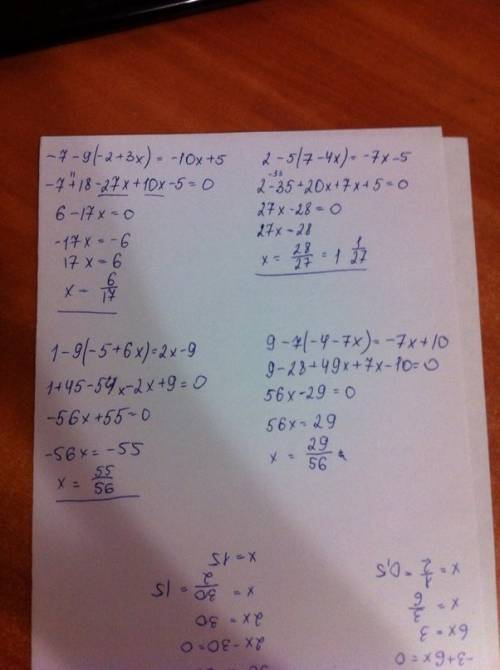 -7-9(-2+3x)=-10x+5
-7+18-27x+10x-5=0
11
6-17x=0
-17x=-6
17x=6
x=6/17
2-5(7-4x)=-7x-5
-33
2-35+20x+7x+5=0
27x-28=0
27x=28
x=28/27=1 1/27
1-9(-5+6x)=2x-9
1+45-54x-2x+9=0
-56x+55=0
-56x=-55
x=55/56
9-7(-4-7x)=-7x+10
9-28+49x+7x-10=0
56x-29=0
56x=29
x=29/56
2x-30=0
2x=30
x=30/2=15
x=15
-3+6x=0
6x=3
x=3/6
x=1/2=0,5